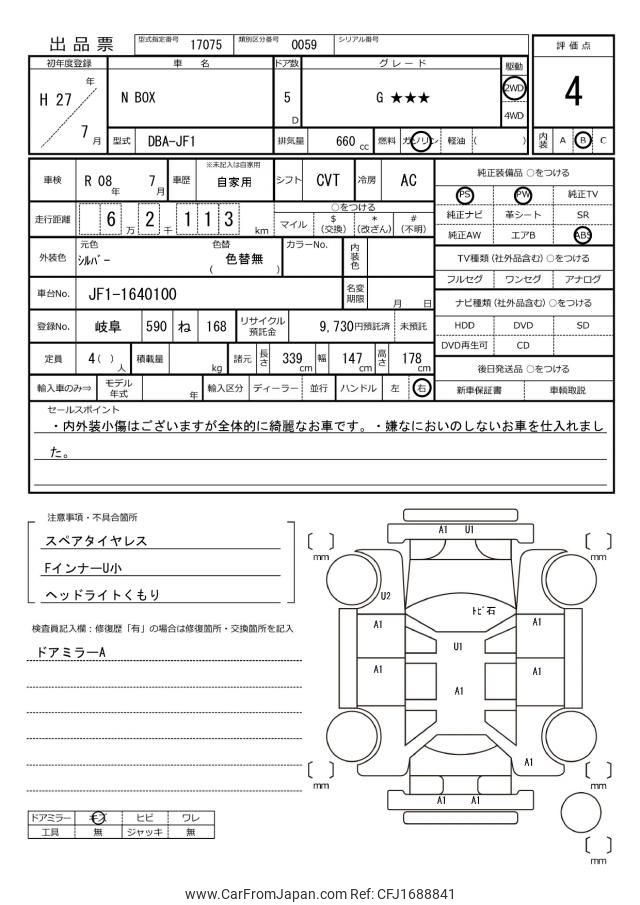 出品票
型式指定番号 17075 類別区分番号 0059 シリアル番号
評価点
4
内装 A B C
初年度登録 車名 ドア数 グレード 駆動
H 27 年 7 月
N BOX 5 D G ★★★ 2WD 4WD
型式 DBA-JF1 排気量 660 cc 燃料 ガソリン 軽油 ( )
車検 R 08 年 7 月 車歴 ※未記入は自家用 自家用 シフト CVT 冷房 AC
走行距離 6 万 2 千 1 1 3 km
○をつける
マイル $ (交換) * (改ざん) # (不明)
外装色 元色 シルバー 色替 ( 色替無 ) カラーNo. 内装色
車台No. JF1-1640100 名変期限 月 日
登録No. 岐阜 590 ね 168 リサイクル預託金 9,730円預託済 未預託
定員 4( ) 人 積載量 kg 諸元 長さ 339 cm 幅 147 cm 高さ 178 cm
輸入車のみ⇒ モデル年式 年 輸入区分 ディーラー 並行 ハンドル 左 右
純正装備品 ○をつける
PS PW 純正TV
純正ナビ 革シート SR
純正AW エアB ABS
TV種類 (社外品含む) ○をつける
フルセグ ワンセグ アナログ
ナビ種類 (社外品含む) ○をつける
HDD DVD SD
DVD再生可 CD
後日発送品 ○をつける
新車保証書 車輌取説
セールスポイント
・内外装小傷はございますが全体的に綺麗なお車です。・嫌なにおいのしないお車を仕入れまし
た。
注意事項・不具合箇所
スペアタイヤレス
FインナーU小
ヘッドライトくもり
検査員記入欄：修復歴「有」の場合は修復箇所・交換箇所を記入
ドアミラーA
ドアミラー キズ ヒビ ワレ
工具 無 ジャッキ 無
A1 U1
mm mm
U2
トビ石
A1 A1
U1
A1 A1 A1
A1
mm mm
A1 A1
mm
www.CarFromJapan.com Ref: CFJ1688841